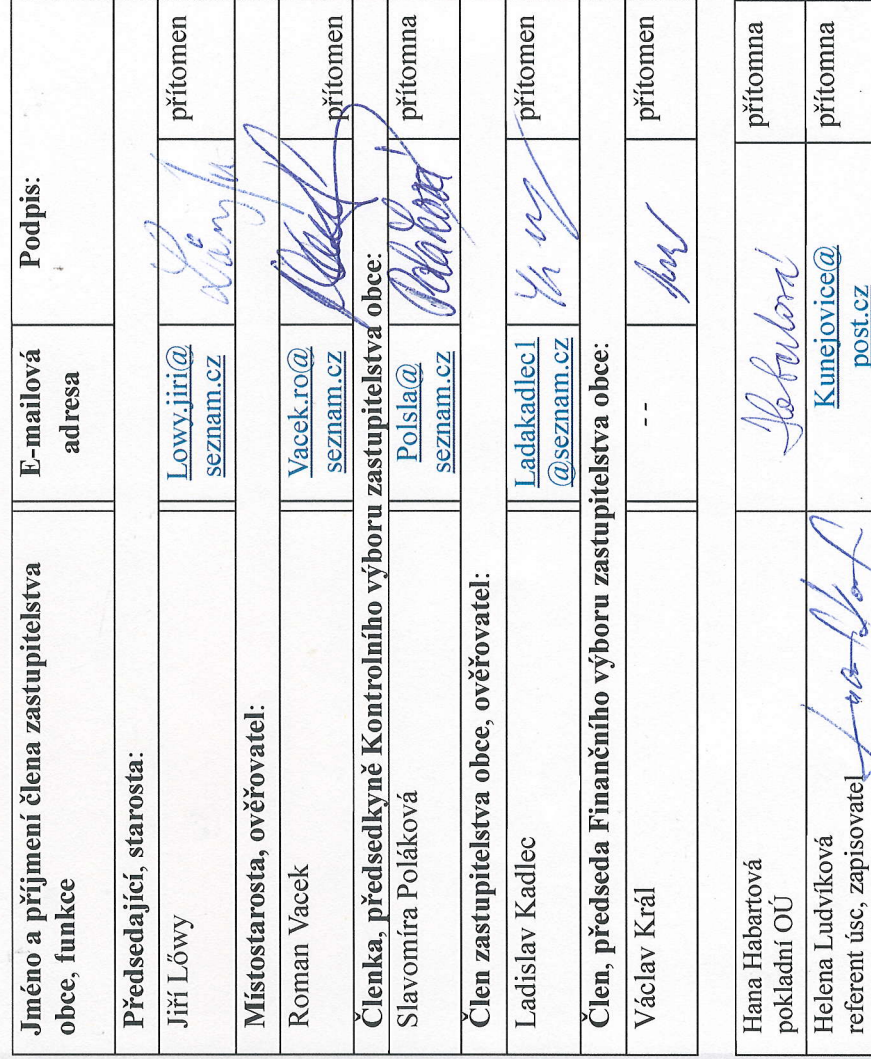 Jméno a příjmení člena zastupitelstva
obce, funkce
E-mailová
adresa
Podpis:
Předsedající, starosta:
Jiří Lőwy
Lowy.jiri@
seznam.cz
přítomen
Místostarosta, ověřovatel:
Roman Vacek
Vacek.ro@
seznam.cz
přítomen
Členka, předsedkyně Kontrolního výboru zastupitelstva obce:
Slavomíra Poláková
Polsla@
seznam.cz
Poláková
přítomna
Člen zastupitelstva obce, ověřovatel:
Ladislav Kadlec
Ladakadlec1
@seznam.cz
přítomen
Člen, předseda Finančního výboru zastupitelstva obce:
Václav Král
- -
přítomen
Hana Habartová
pokladní OÚ
přítomna
Helena Ludvíková
referent úsc, zapisovatel
Kunejovice@
post.cz
přítomna